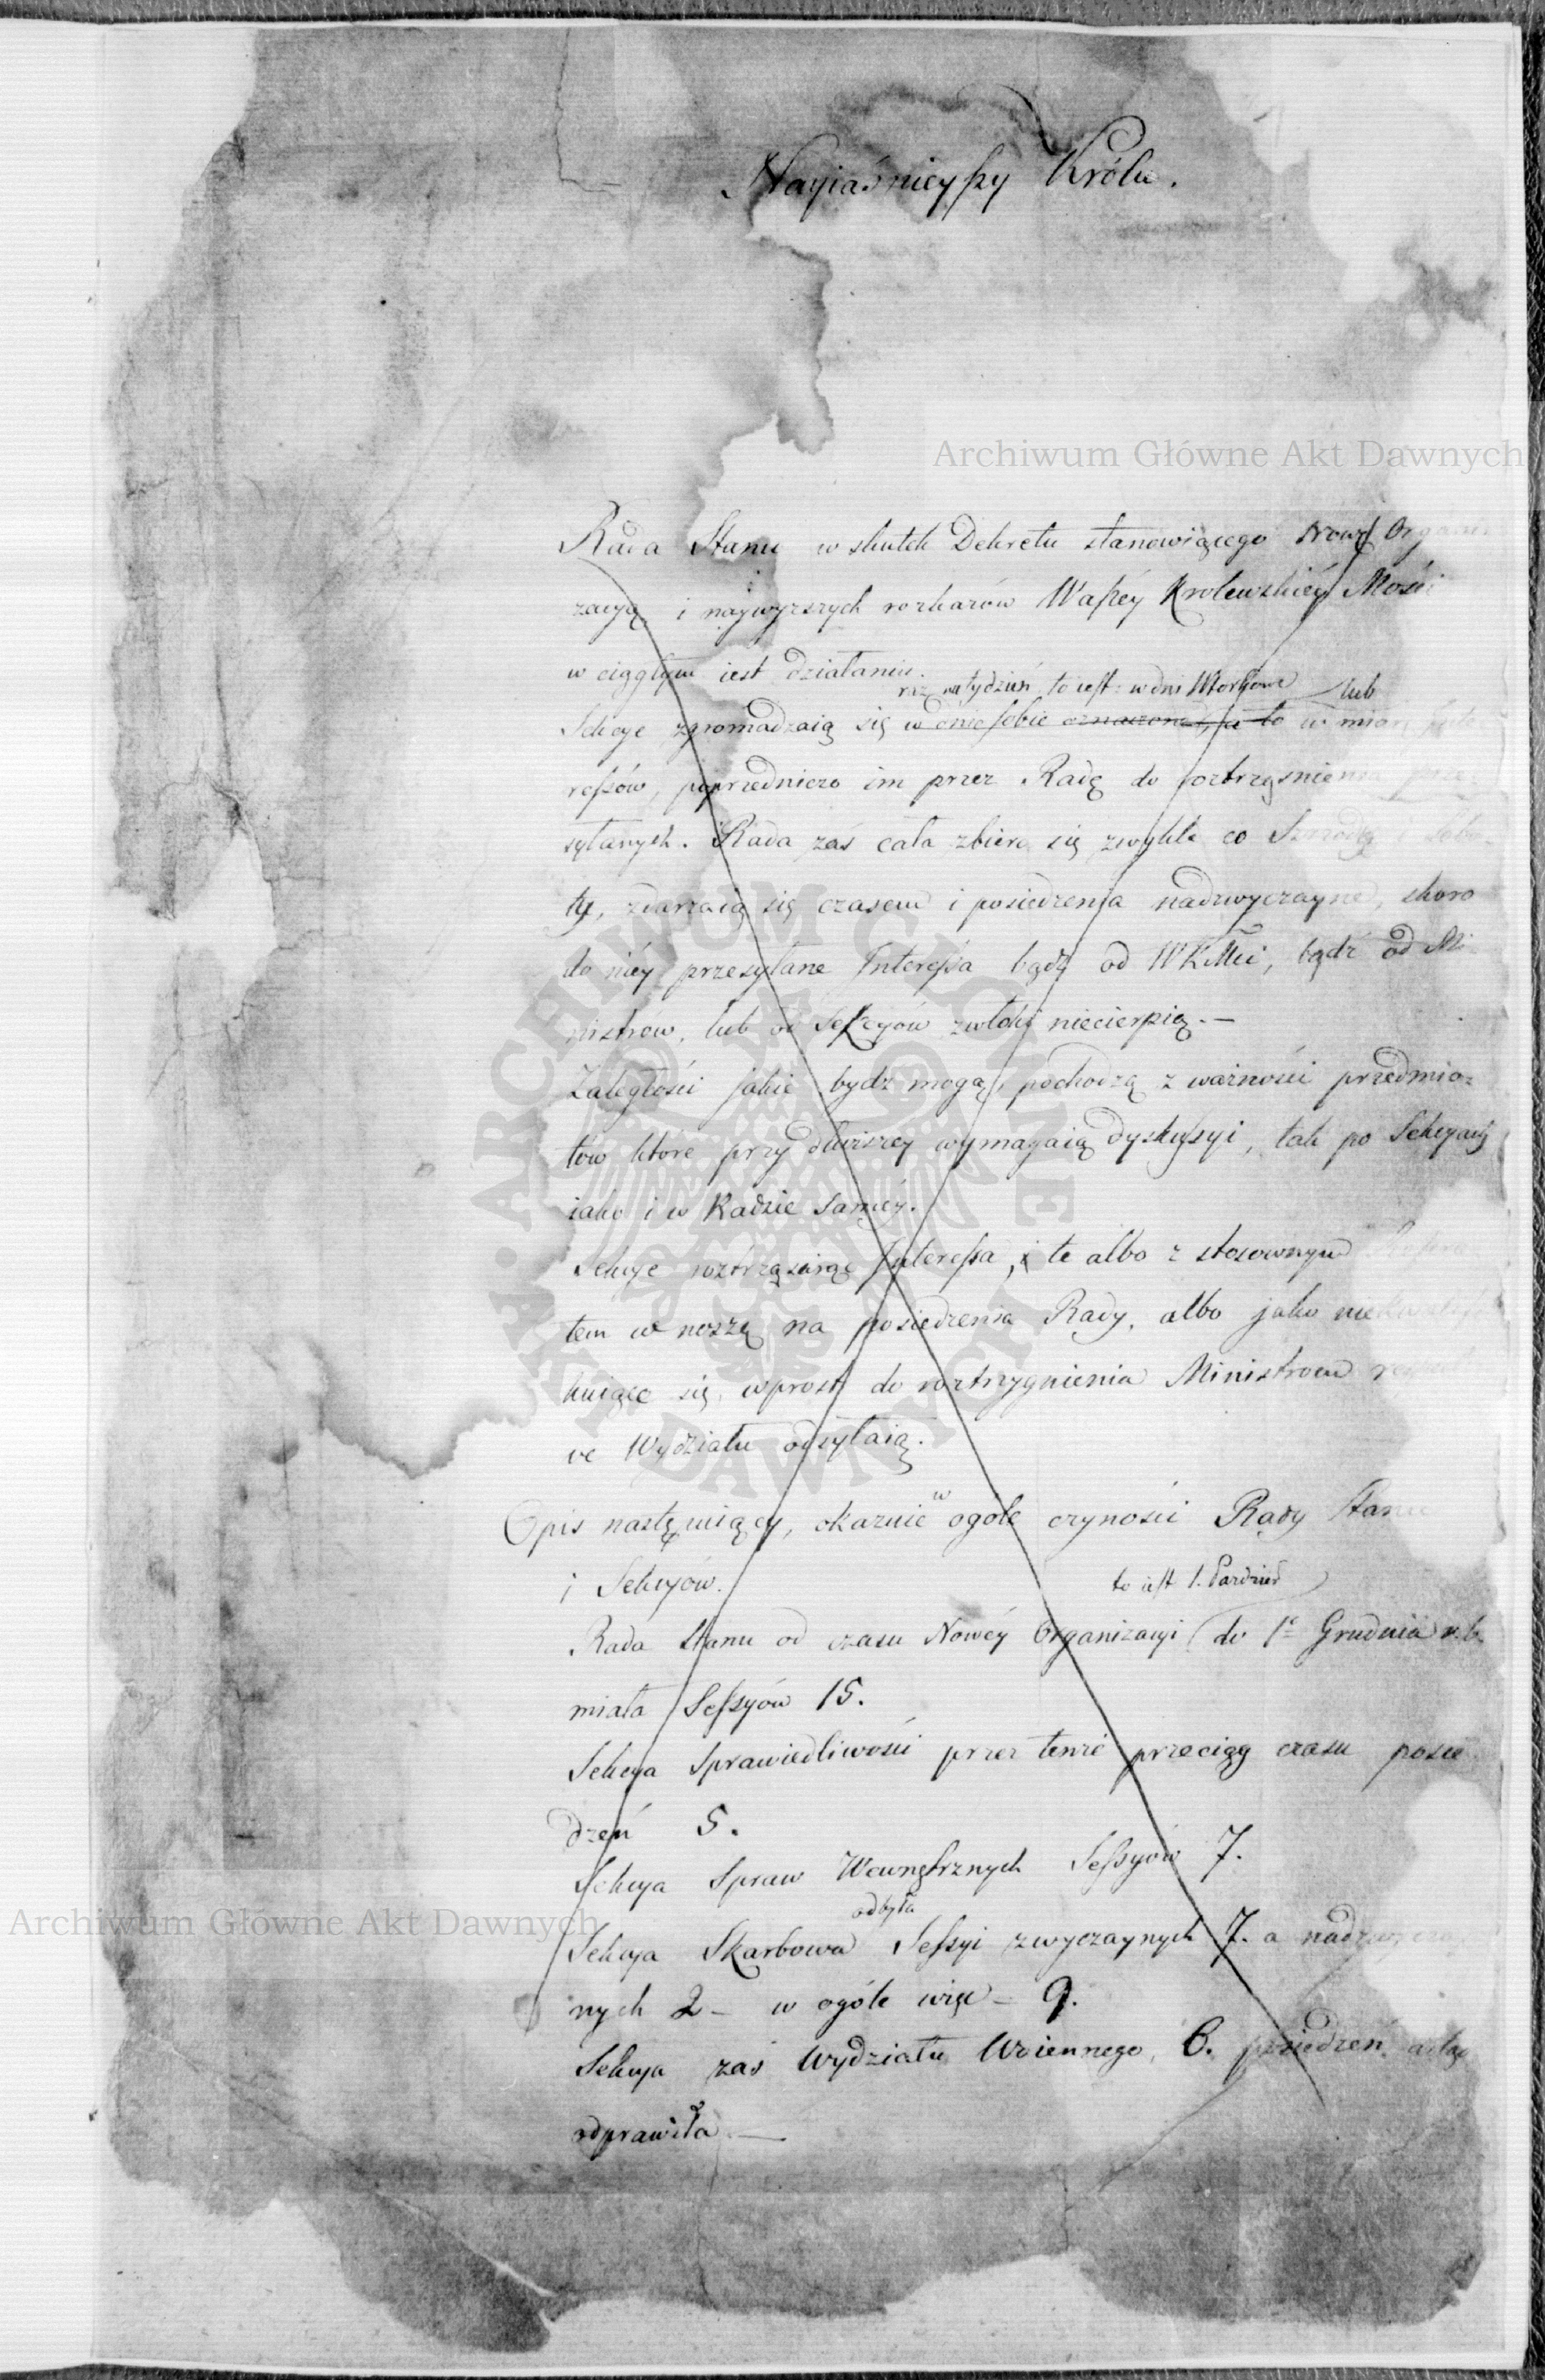 Nayiaśnieyszy Królu.
Archiwum Główne Akt Dawnych
Rada Stanu w skutek Dekretu stanowiącego Nową Organi
zacyą i naywyzszych rozkazów Waszéy Krolewskiéy Mości
w ciągłym iest działaniu.
raz na tydzień to iest: w dni Wtorkowe lub
Sekcye zgromadzaią się w dnie sobie oznaczone, a to w miarę Inte
ressów, poprzedniczo im przez Radę do roztrząsnienia prze-
syłanych. Rada zaś cała zbiera się zwykle co Szrodę i Sobo-
tę, zdarzaią się czasem i posiedzenia nadzwyczayne, skoro
do niéy przesyłane Interessa bądź od WKMci, bądź od Mi-
nistrów, lub od Sekcyów zwłoki niecierpią.—
Zaległości jakie bydz mogą, pochodzą z ważności przedmio-
tów które przy dłuższey wymagaią dyskussyi, tak po Sekcyach
iako i w Radzie saméy.
Sekcye roztrząsaiąc Interessa, te albo z stosownym
tem w noszą na posiedzenia Rady, albo jako niekwalifi
kuiące się, wprost do roztrzygnienia Ministrom
ve Wydziału odsyłaią.
w
Opis następuiący, okazuie ogóle czyności Rady Stanu
i Sekcyów.
to iest 1. Pazdzier
Rada Stanu od czasu Nowéy Organizacyi do 1o Grudnia r.b.
miała Sessyów 15.
Sekcya Sprawiedliwości przez tenże przeciąg czasu posie
dzeń 5.
Sekcya Spraw Wewnętrznych Sessyów 7.
odbyła
Sekcya Skarbowa Sessyi zwyczaynych 7. a nadzwyczay
nych 2 – w ogóle więc – 9.
Sekcya zaś Wydziału Woiennego, 6. posiedzeń
odprawiła —
Archiwum Główne Akt Dawnych
ARCHIWUM GŁÓWNE AKT DAWNYCH